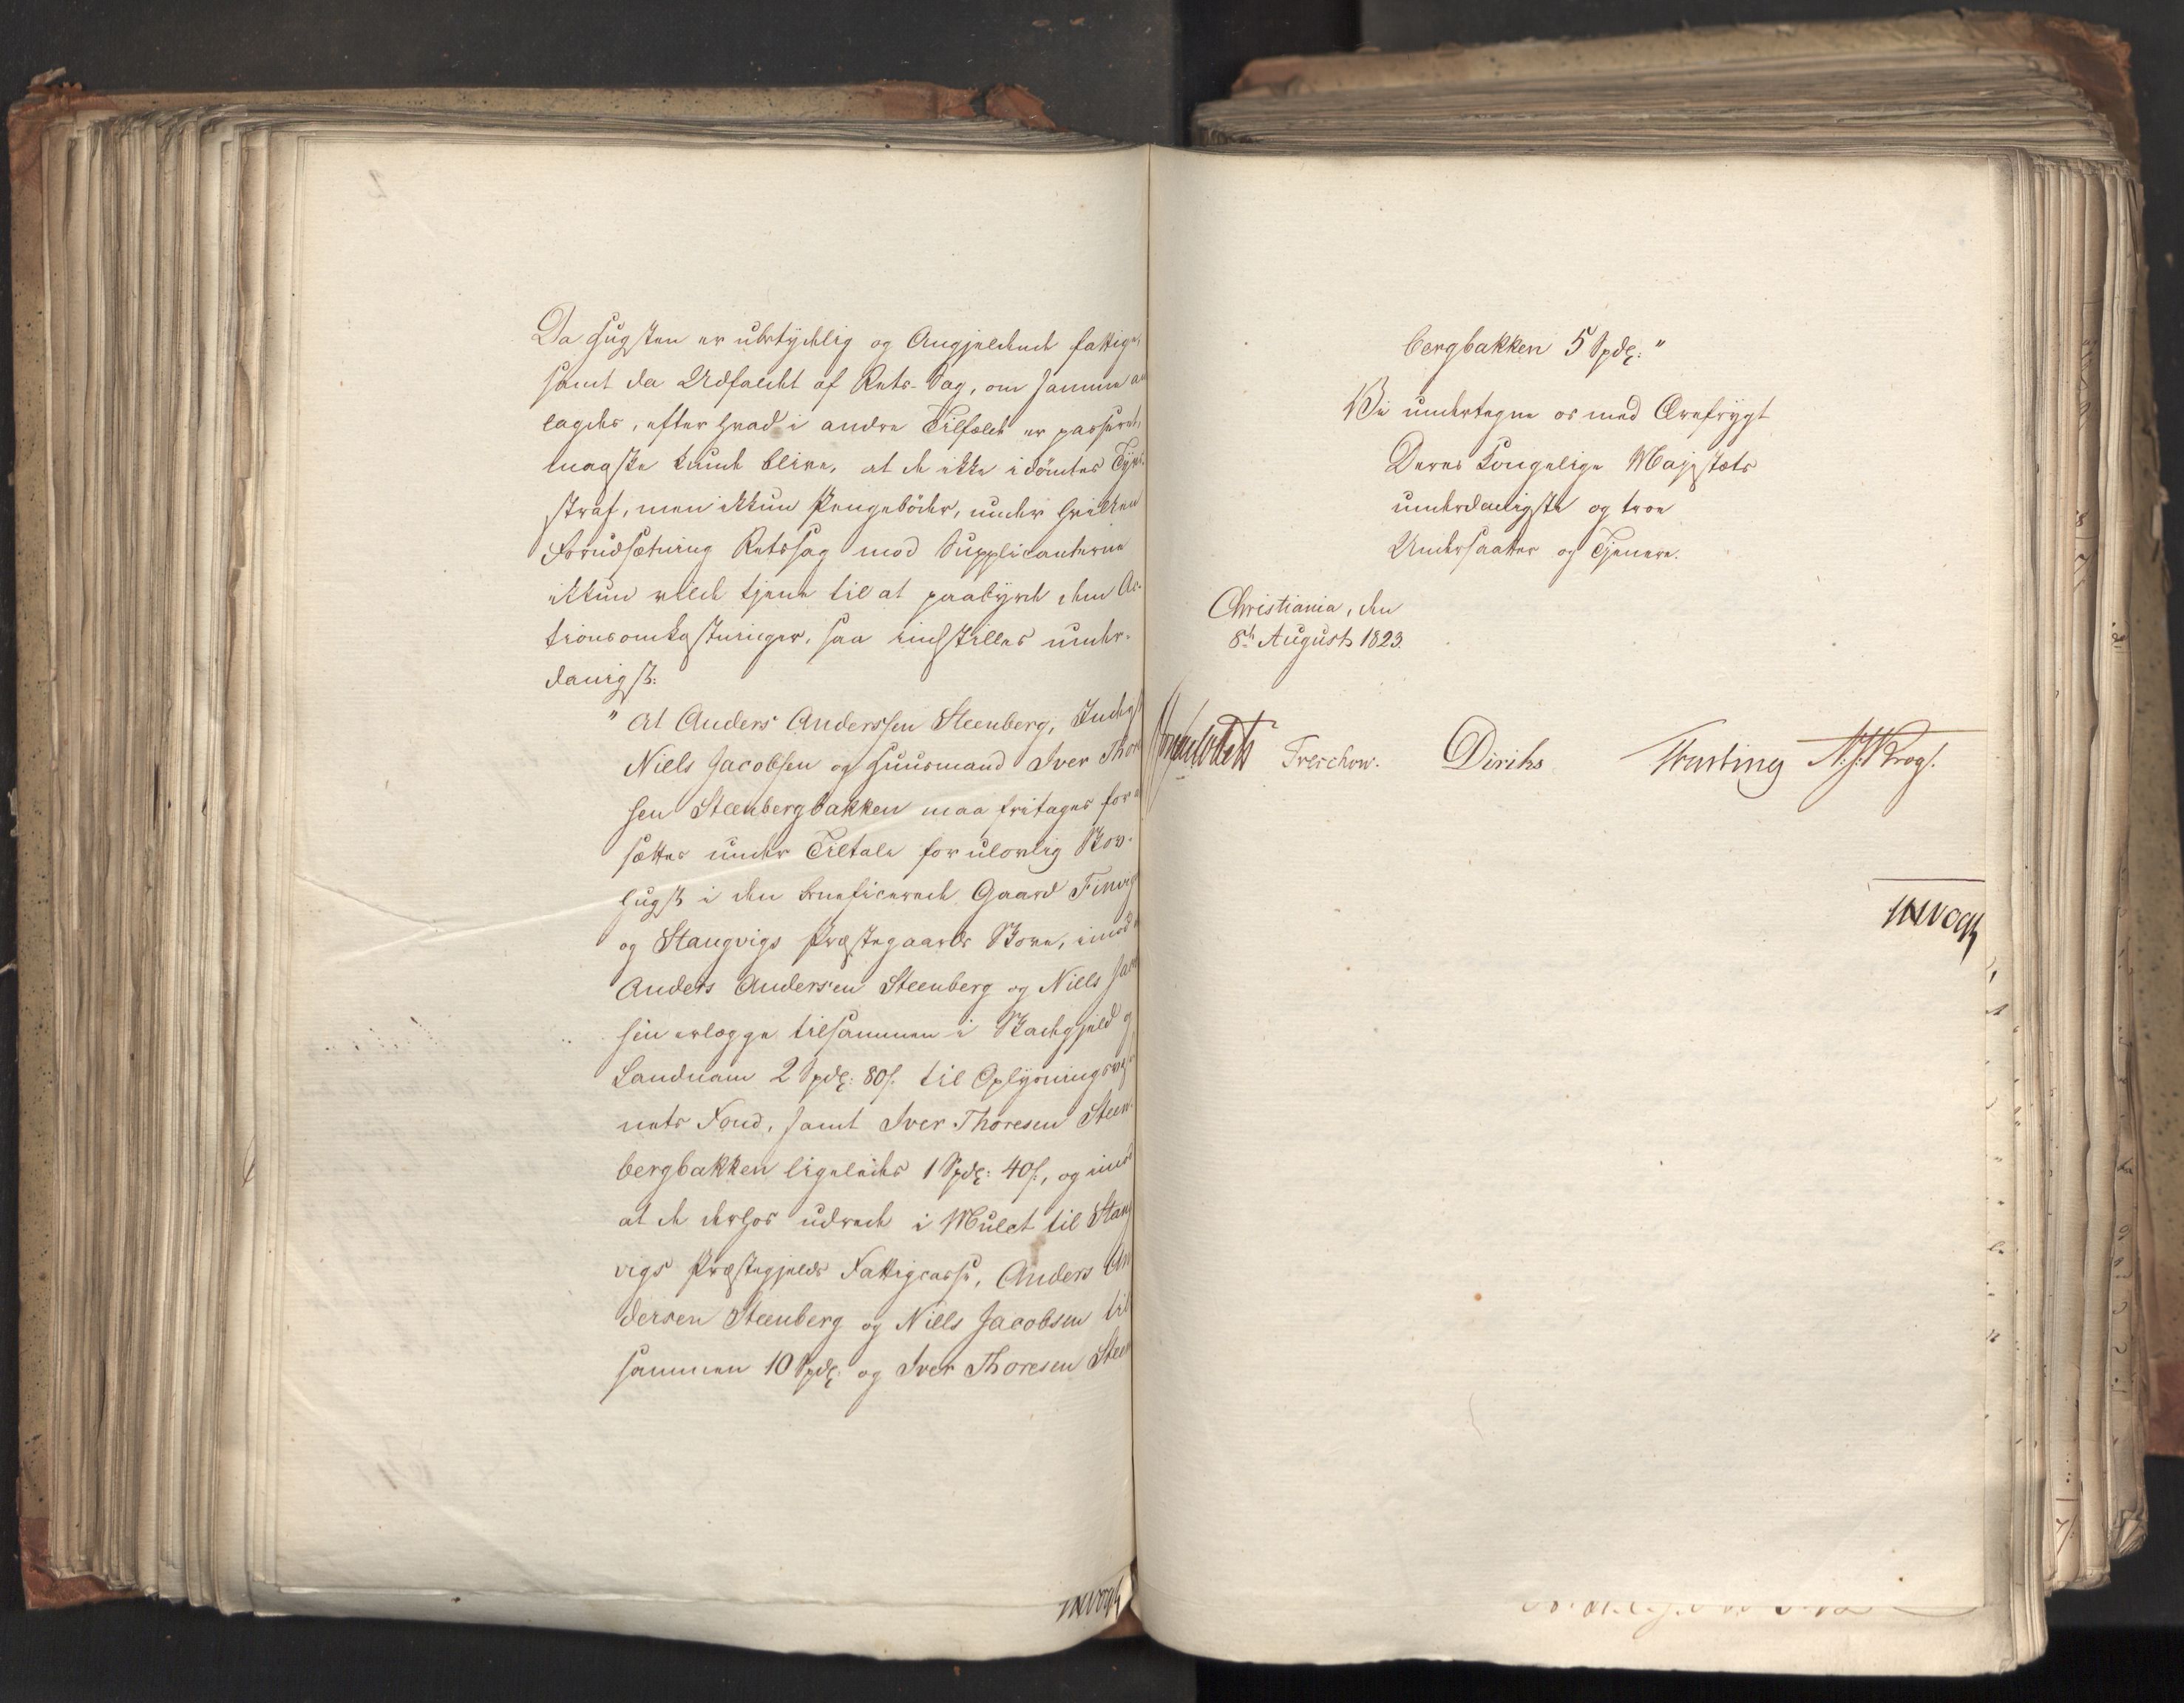 Da Hugsten er ubetydelig og Angjeldende fattige,
samt da Udfaldet af Rets-Sag, om samme an
lagdes, efter hvad i andre Tilfælde er passeret,
maaske kunde blive, at de ikke idömtes Tyvs-
straf, men ikkun Pengeböder, under hvilken
Forudsætning Retssag mod Supplicanterne
ikkun vilde tjene til at paabyrde dem Ac-
tionsomkostninger, saa indstilles under-
danigst:
" At Anders Anderssen Steenberg, Inderst
Niels Jacobsen og Huusmand Iver Thore
sen Steenbergbakken maa fritages for at
sættes under Tiltale for ulovlig Skov-
hugst i den beneficerede Gaard
og Stangvigs Præstegaards Skove, imod at
Anders Andersen Steenberg og Niels Jacob
sen erlægge tilsammen i Skadegjeld og
Landnam 2 Spdlr: 80 s. til Oplysningsvæs
nets Fond, samt Iver Thoresen Steen-
bergbakken ligeledes 1 Spdlr: 40 s., og imod
at de derhos udrede i Mulct til Stang
vigs Præstegjelds Fattigcasse, Anders An
dersen Steenberg og Niels Jacobsen til
sammen 10 Spdlr. og Iver Thoresen Steen
bergbakken 5 Spdlr: "
Vi undertegne os med Ærefrygt
Deres Kongelige Majestæts
underdanigste og troe
Undersaatter og Tjenere.
Christiania, den
8de August 1823.
Treschow. Diriks N. J. Krog.